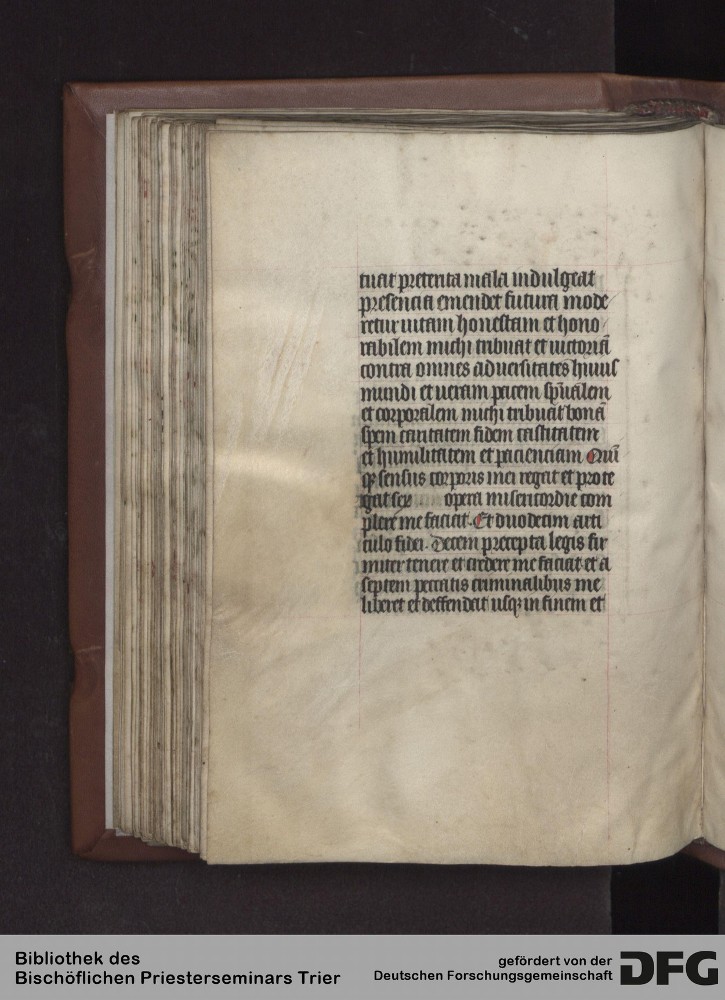 tuat preterita mala indulgeat
presencia emendet futura mode
retur uitam honestam et hono
rabilem michi tribuat et uictoriā
contra omnes aduersitates huius
mundi et ueram pacem sp̄ualem
et corporalem michi tribuat bonā
spem caritatem fidem castitatem
et humilitatem et pacienciam Quī
qꝫ sensus corporis mei regat et prote
gat sex opera misericordie com
plere me faciat. Et duodecim arti
culo fidei. Decem precepta legis fir
miter tenere et credere me faciat et a
septem peccatis criminalibus me
liberet et deffendeat usqꝫ in finem et
Bibliothek des
Bischöflichen Priesterseminars Trier
gefördert von der
Deutschen Forschungsgemeinschaft
DFG